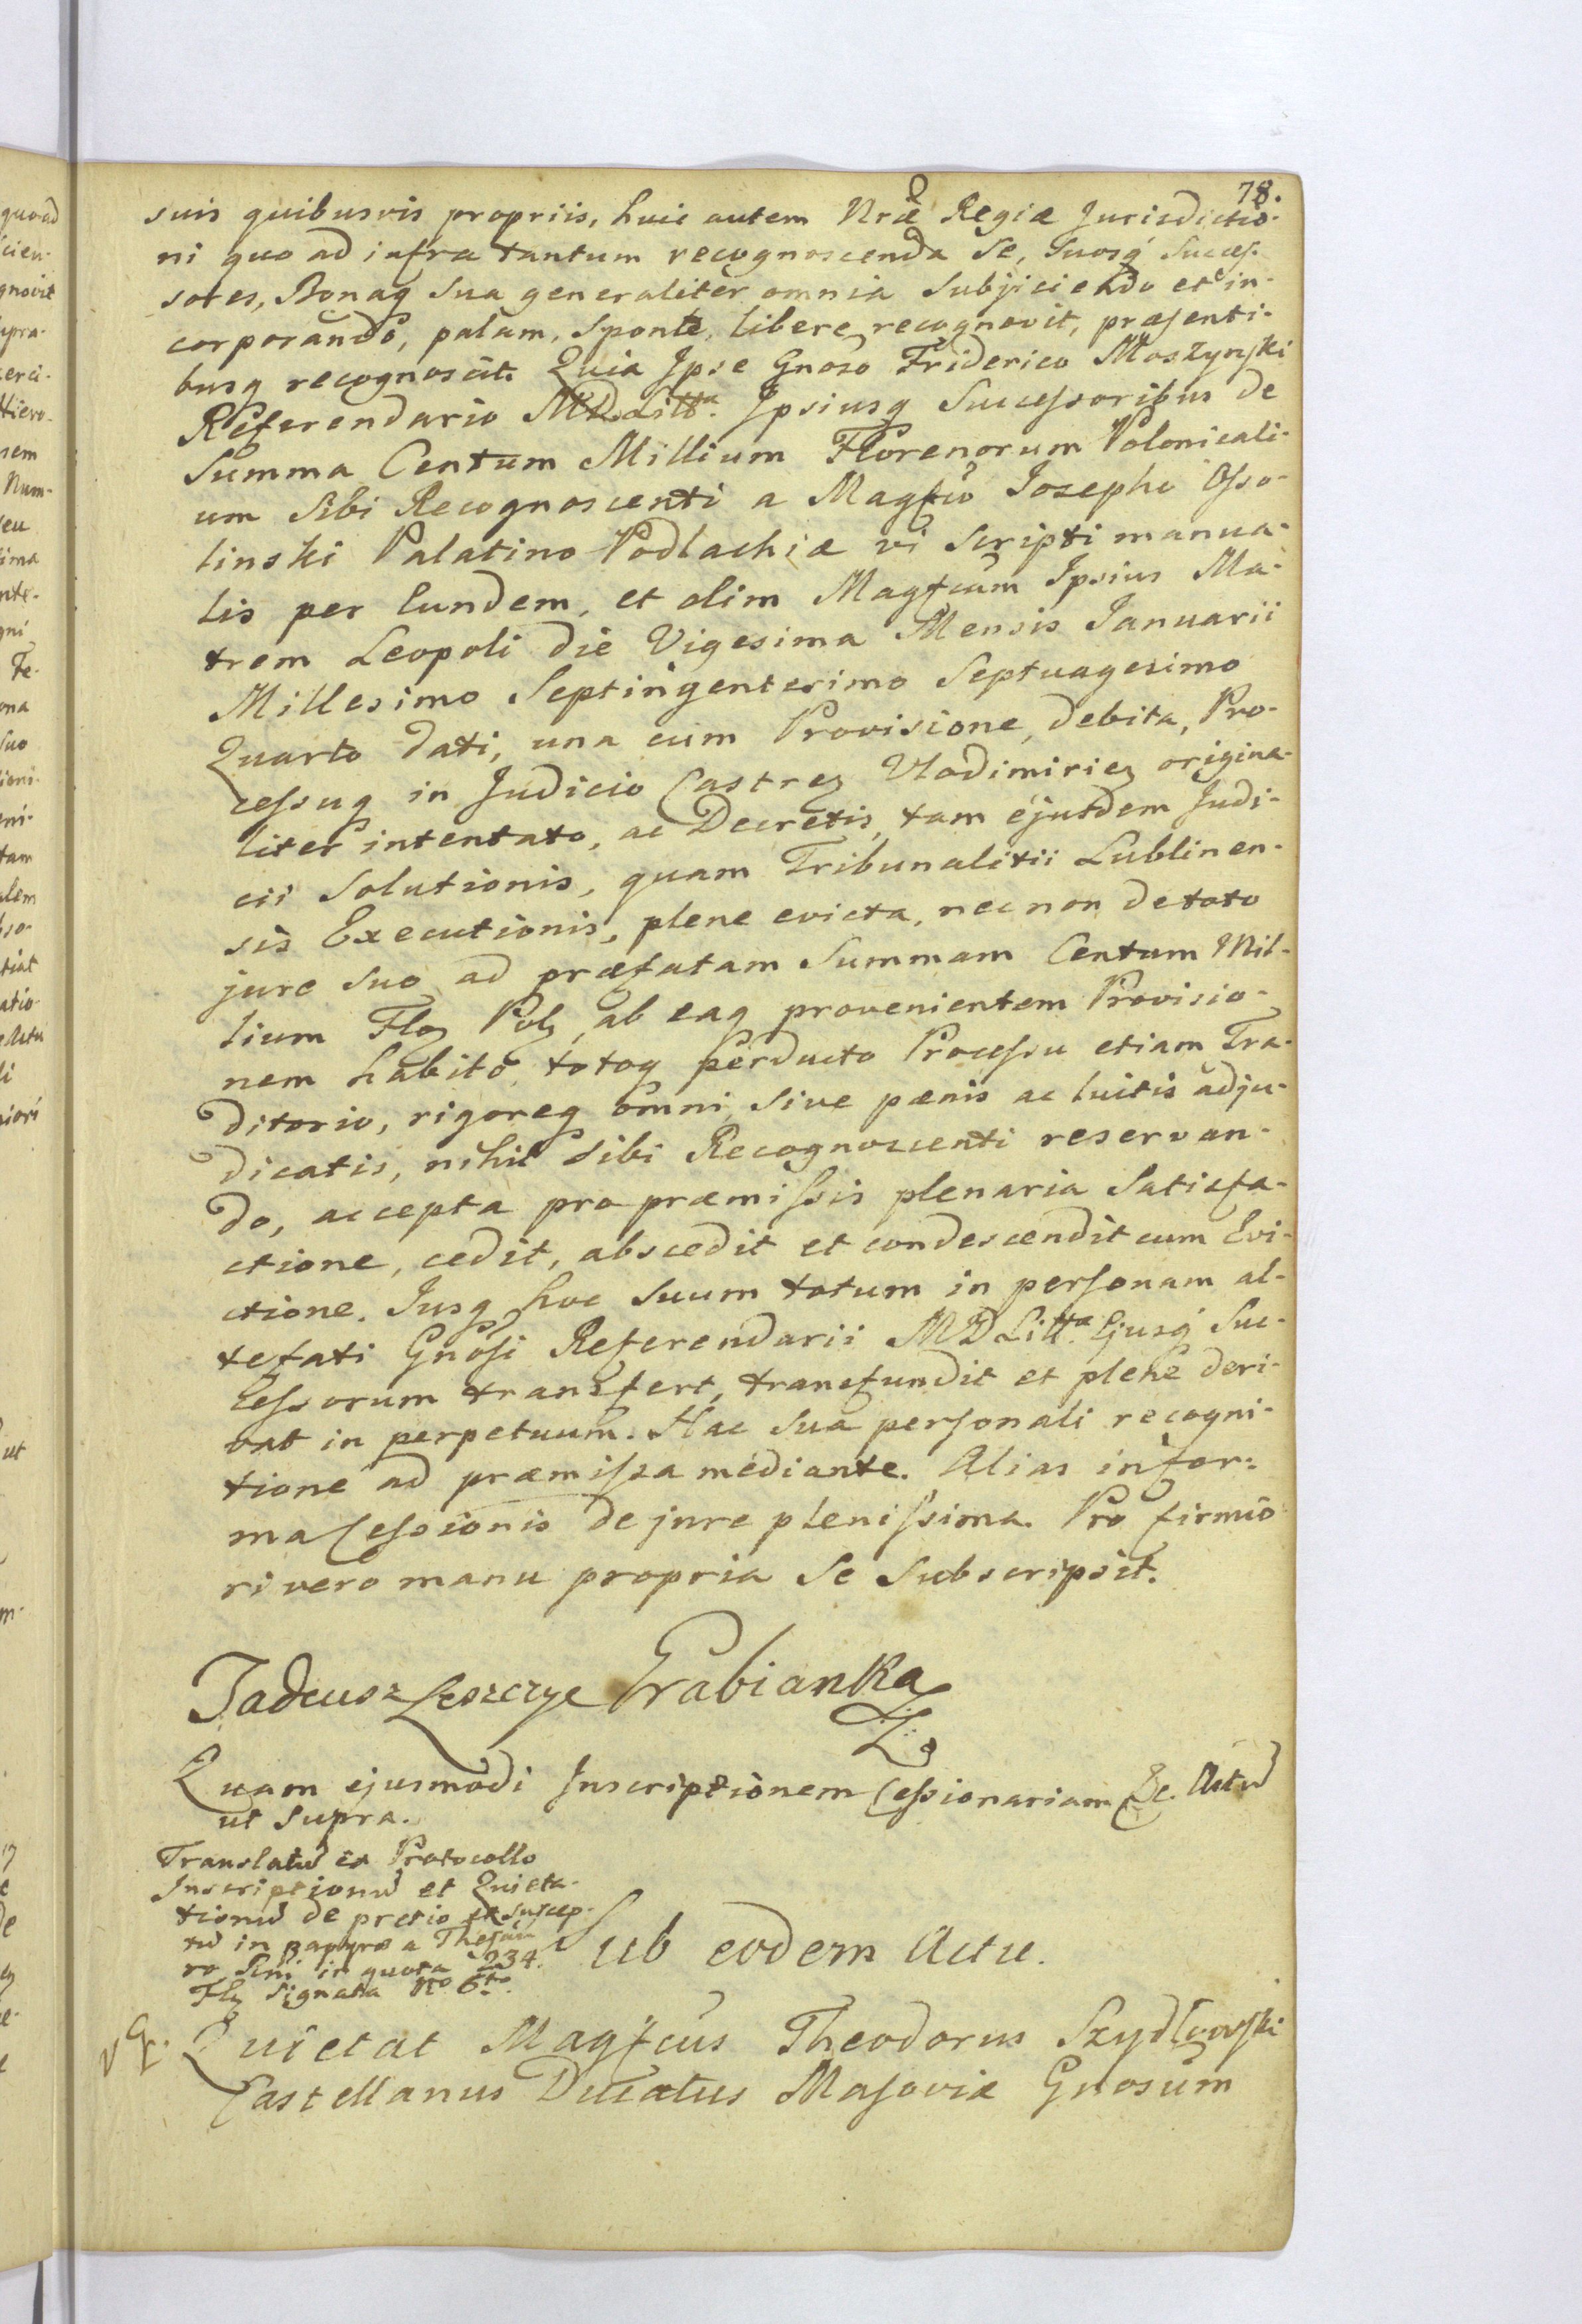 78.
suis quibusvis propriis, huic autem Nrae Regiae Jurisdictio-
ni quo ad infra tantum recognoscenda se, suosq Succes-
sores, Bonaq sua generaliter omnia subjiciendo et in-
corporando, palam, sponte, libere recognovit, praesenti-
busq recognoscit. Quia Ipse Gnoso Friderico Moszynski
Referendario MDLitt. Ipsiusq Successoribus de
Summa Centum Millium Florenorum Polonicali-
um sibi Recognoscenti a Magfco Josepho Osso-
linski Palatino Podlachiae vi scripti manua-
lis per Eundem, et olim Magfcam Ipsius Ma-
trem Leopoli die Vigesima Mensis Januarii
Millesimo Septingentesimo Septuagesimo
Quarto dati, una cum Provisione, debita, Pro-
cessuq in Judicio Castren Vladimirien origina-
liter intentato, ac Decretis, tam ejusdem Judi-
cii Solutionis, quam Tribunalitii Lublinen-
sis Executionis, plene evicta, nec non de toto
jure suo ad praefatam Summam Centum Mil-
lium Flor Pol, ab eaq provenientem Provisio-
nem habito, totoq perducto Processu etiam Tra-
ditorio, rigoreq omni, sive paenis ac luitis adju-
dicatis, nihil sibi Recognoscenti reservan-
do, accepta pro praemissis plenaria Satisfa-
ctione, cedit, abscedit et condescendit cum Evi-
ctione. Jusq hoc suum totum in personam al-
tefati Gnosi Referendarii MDLitt. Ejusq Suc-
cessorum transfert, transfundit et plene deri-
vat in perpetuum. Hac sua personali recogni-
tione ad praemissa mediante. Alias in for-
ma Cessionis de jure plenissima. Pro firmio
ri vero manu propria se subscripsit.
Tadeusz Leszczyc Grabianka
Quam ejusmodi Inscriptionem Cessionariam &c. Actu
ut supra.
Translatu ex Protocollo
Inscriptionu et Quieta-
tionu de pretio suscep-
tu in papyro a Thesau
ro in quota 234.
Fl signata No 6to.
Sub eodem Actu.
Quietat Magfcus Theodorus Szydlowski
Castellanus Ducatus Masoviae Gnosum